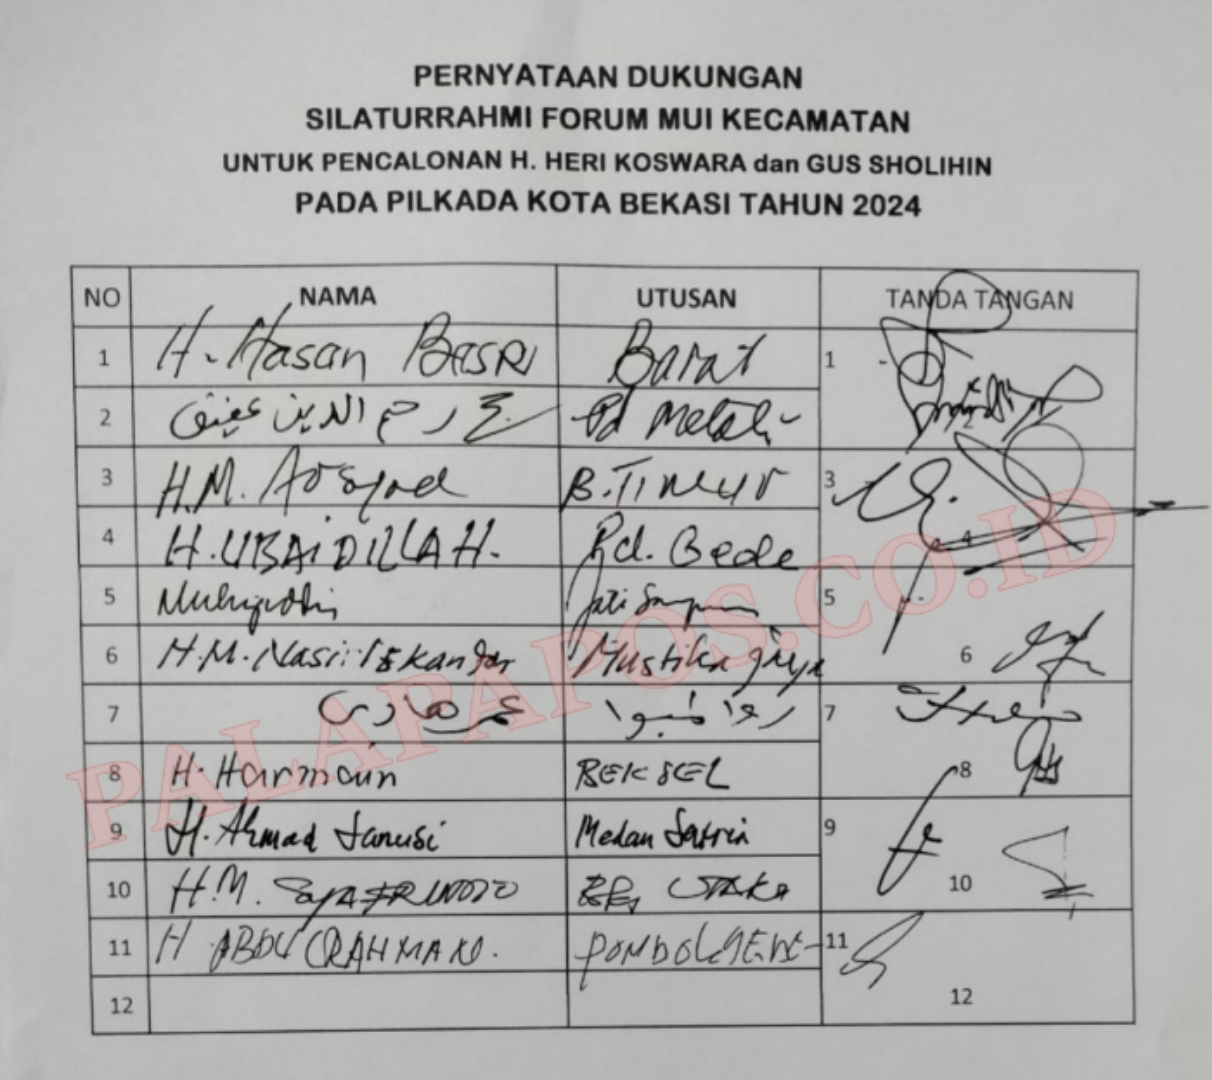 PERNYATAAN DUKUNGAN
SILATURRAHMI FORUM MUI KECAMATAN
UNTUK PENCALONAN H. HERI KOSWARA dan GUS SHOLIHIN
PADA PILKADA KOTA BEKASI TAHUN 2024
NO NAMA UTUSAN TANDA TANGAN
1 H. Hasan BASRI Barat 1
2 Pd Melati 2
3 H.M. Arsyad B. Timur 3
4 H. UBAIDILLAH. Pd. Gede 4
5 Jati 5
6 H.M. Nasir Iskandar Mustika jaya 6
7 7
8 H. Harmain BEKSEL 8
9 H. Ahmad Sanusi Medan Satria 9
10 H.M. 10
11 H ABDURRAHMAN. 11
12 12
PALAPAPOS.CO.ID